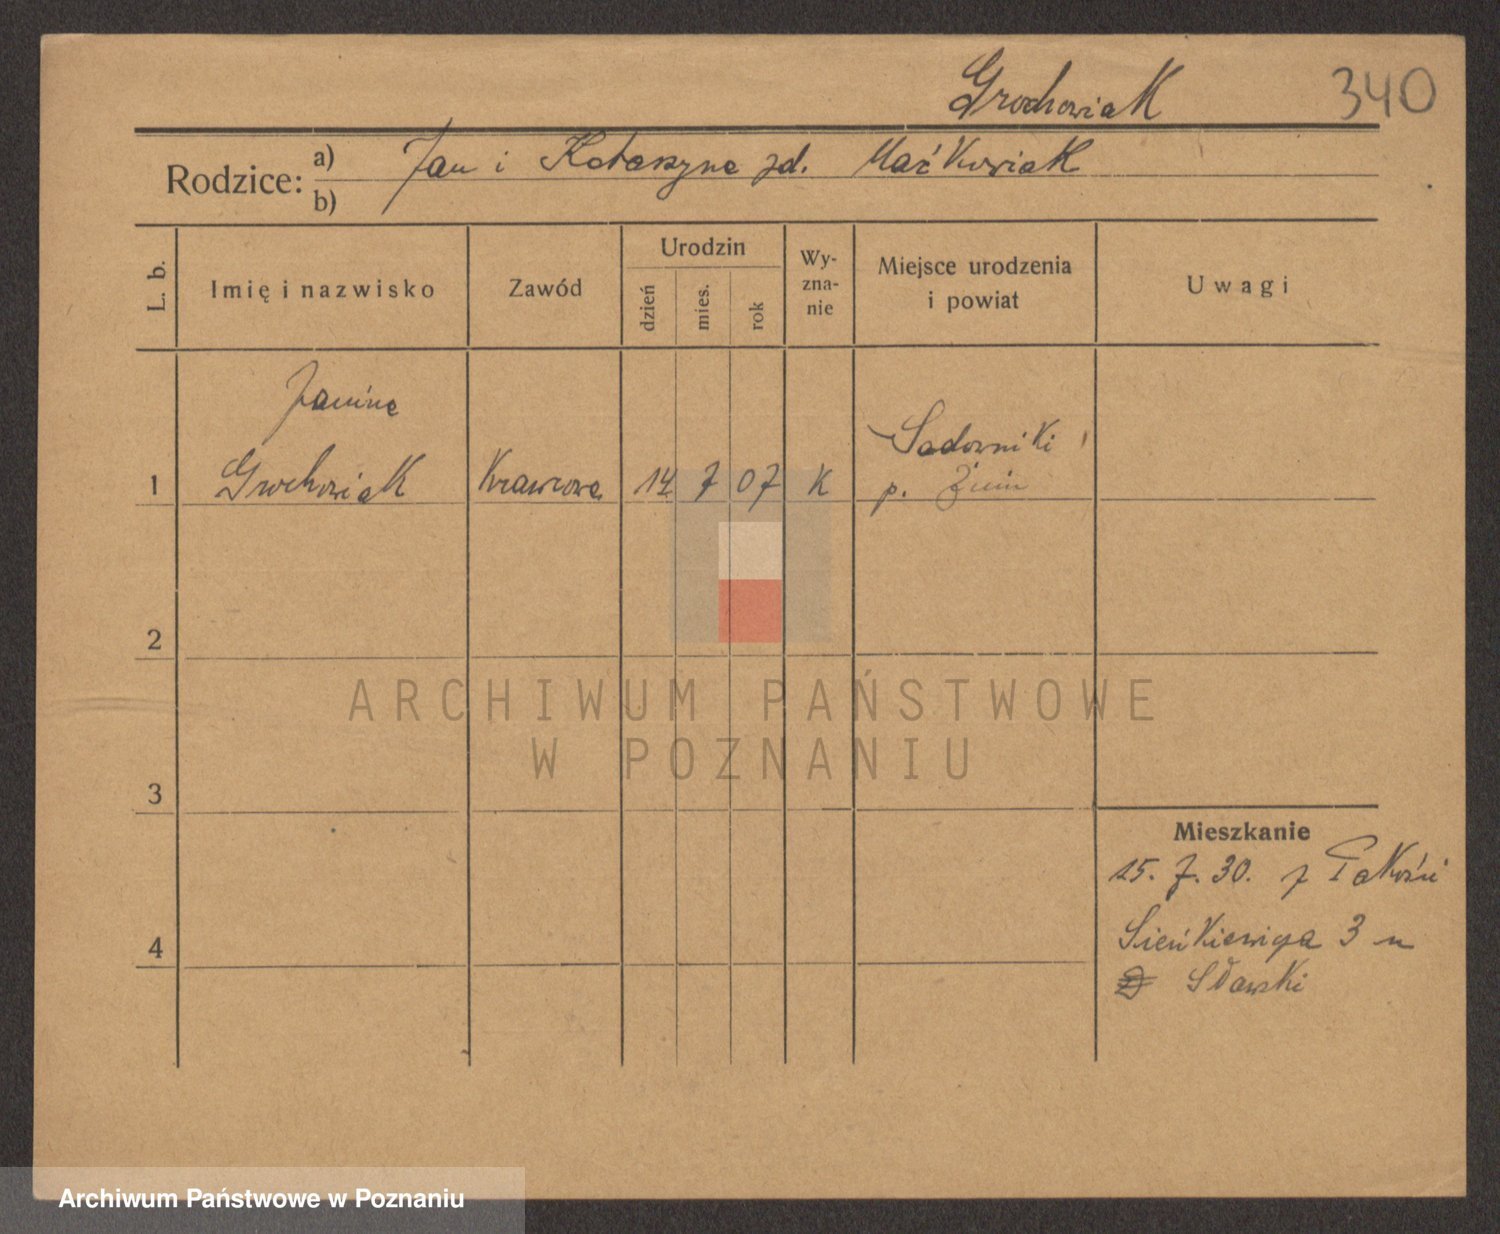 Grochowiak 340
Rodzice: a) Jan i Katarzyna zd. Maćkowiak
b)
L. b. Imię i nazwisko Zawód Urodzin dzień mies. rok Wy-zna-nie Miejsce urodzenia i powiat Uwagi
Janina
Sadowniki
1 Grochowiak Krawcowa 14 7 07 K p. Żnin
2
ARCHIWUM PAŃSTWOWE
W POZNANIU
3
Mieszkanie
15. 7. 30. z Pakości
Sieńkiewicza 3 u
4
Sławski
Archiwum Państwowe w Poznaniu